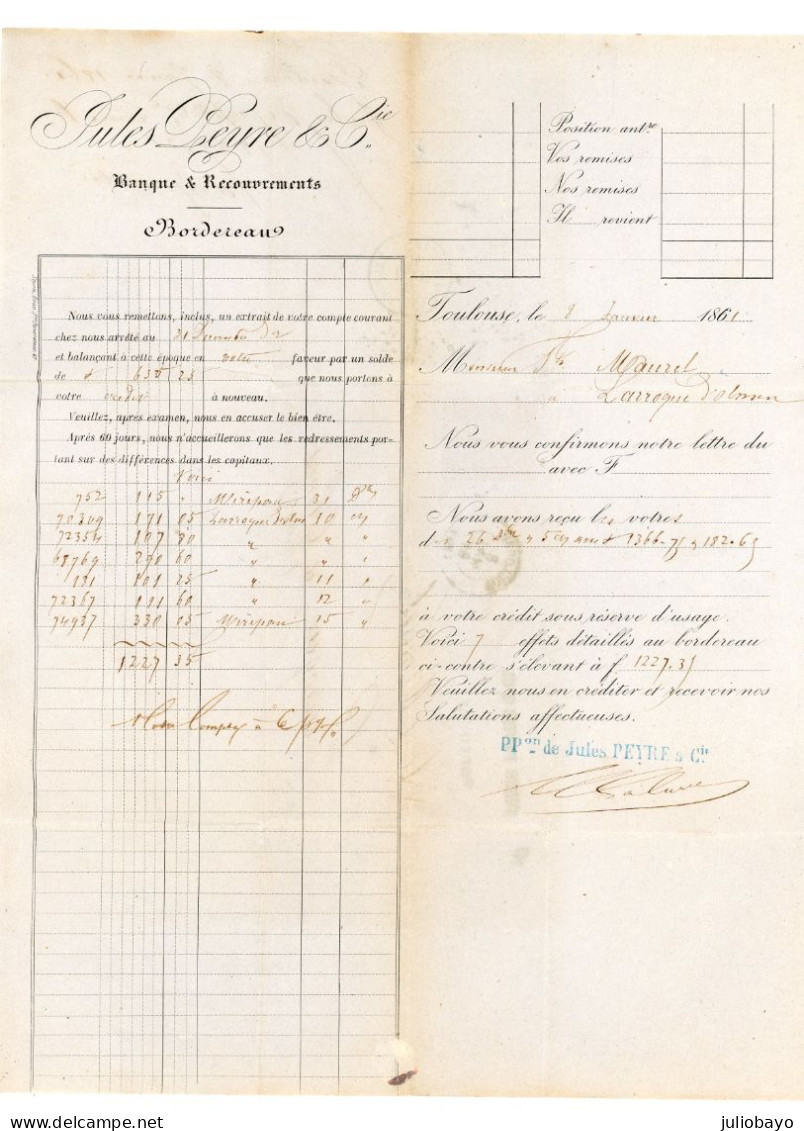 Jules Peyre & Cie.
Banque & Recouvrements
Bordereau
Nous vous remettons, inclus, un extrait de votre compte courant
chez nous arrêté au 31 Décembre der
et balançant à cette époque en votre faveur par un solde
de f 635 25 que nous portons à
votre crédit à nouveau.
Veuillez, après examen, nous en accuser le bien être.
Après 60 jours, nous n'accueillerons que les redressements por-
tant sur des différences dans les capitaux.
Voici
752 115 " Mirepoix 31
70309 171 05 10
72354 107 80 " "
68769 290 60 " "
181 101 25 " 11 "
72367 111 60 " 12 "
74937 330 05 Mirepoix 15 "
1227 35
Position antre
Vos remises
Nos remises
Il revient
Toulouse, le 8 Janvier 1861
Monsieur Maurel
à Larroque d'olmes
Nous vous confirmons notre lettre du
avec F
Nous avons reçu les votres
26 Xbre 5 1366.75 182.65
à votre crédit sous réserve d'usage.
Voici 7 effets détaillés au bordereau
ci-contre s'élevant à f. 1227.35
Veuillez nous en créditer et recevoir nos
Salutations affectueuses.
PPon de Jules PEYRE & Cie
juliobayo